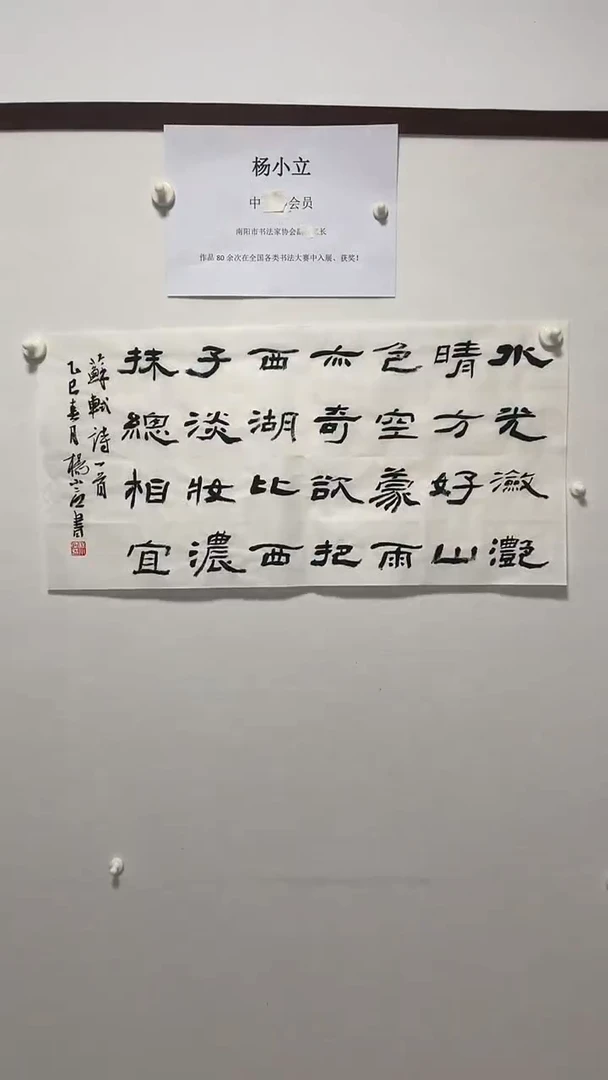 杨小立
中 会员
南阳市书法家协会 长
作品 80 余次在全国各类书法大赛中入展、获奖!
水光瀲灩
晴方好山
色空蒙雨
亦奇欲把
西湖比西
子淡妝濃
抹總相宜
蘇軾詩一首
乙巳春月楊小立書